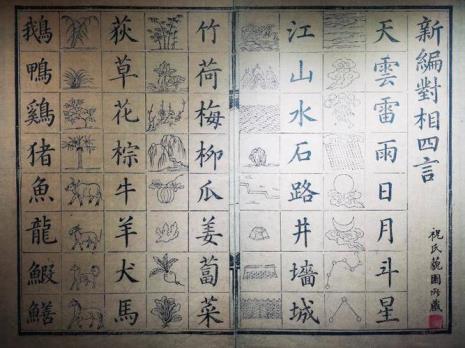 新編對相四言
天雲雷雨日月斗星
江山水石路井墻城
竹荷梅柳瓜姜蔔菜
荻草花棕牛羊犬馬
鵝鴨鷄猪魚龍鰕鱔
祝氏園所藏